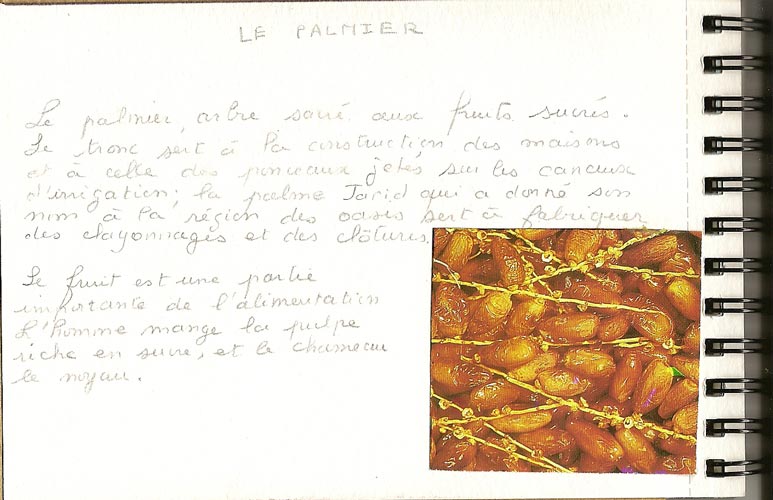 LE PALMIER
Le palmier, arbre sacré aux fruits sucrés.
Le tronc sert à la construction des maisons
et à celle des ponceaux jetés sur les canaux
d'irrigation; la palme Jarid qui a donné son
nom à la région des oasis sert à fabriquer
des clayonnages et des clôtures.
Le fruit est une partie
importante de l'alimentation
L'homme mange la pulpe
riche en sucre, et le chameau
le noyau.